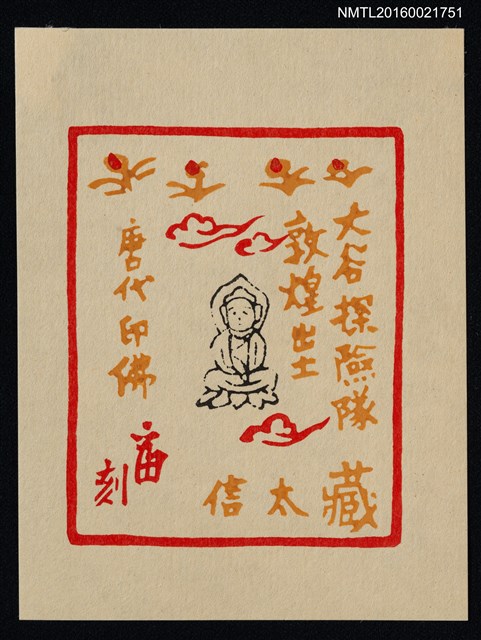 NMTL20160021751
大谷探險隊
藏
敦煌出土
太
信
唐代印佛
刻